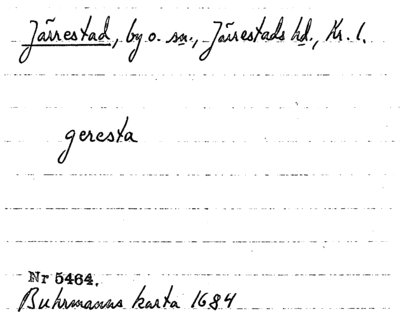 Järrestad, by o. sn., Järrestads hd., Kr. l.
geresta
Nr 5464.
Buhrmanns karta 1684